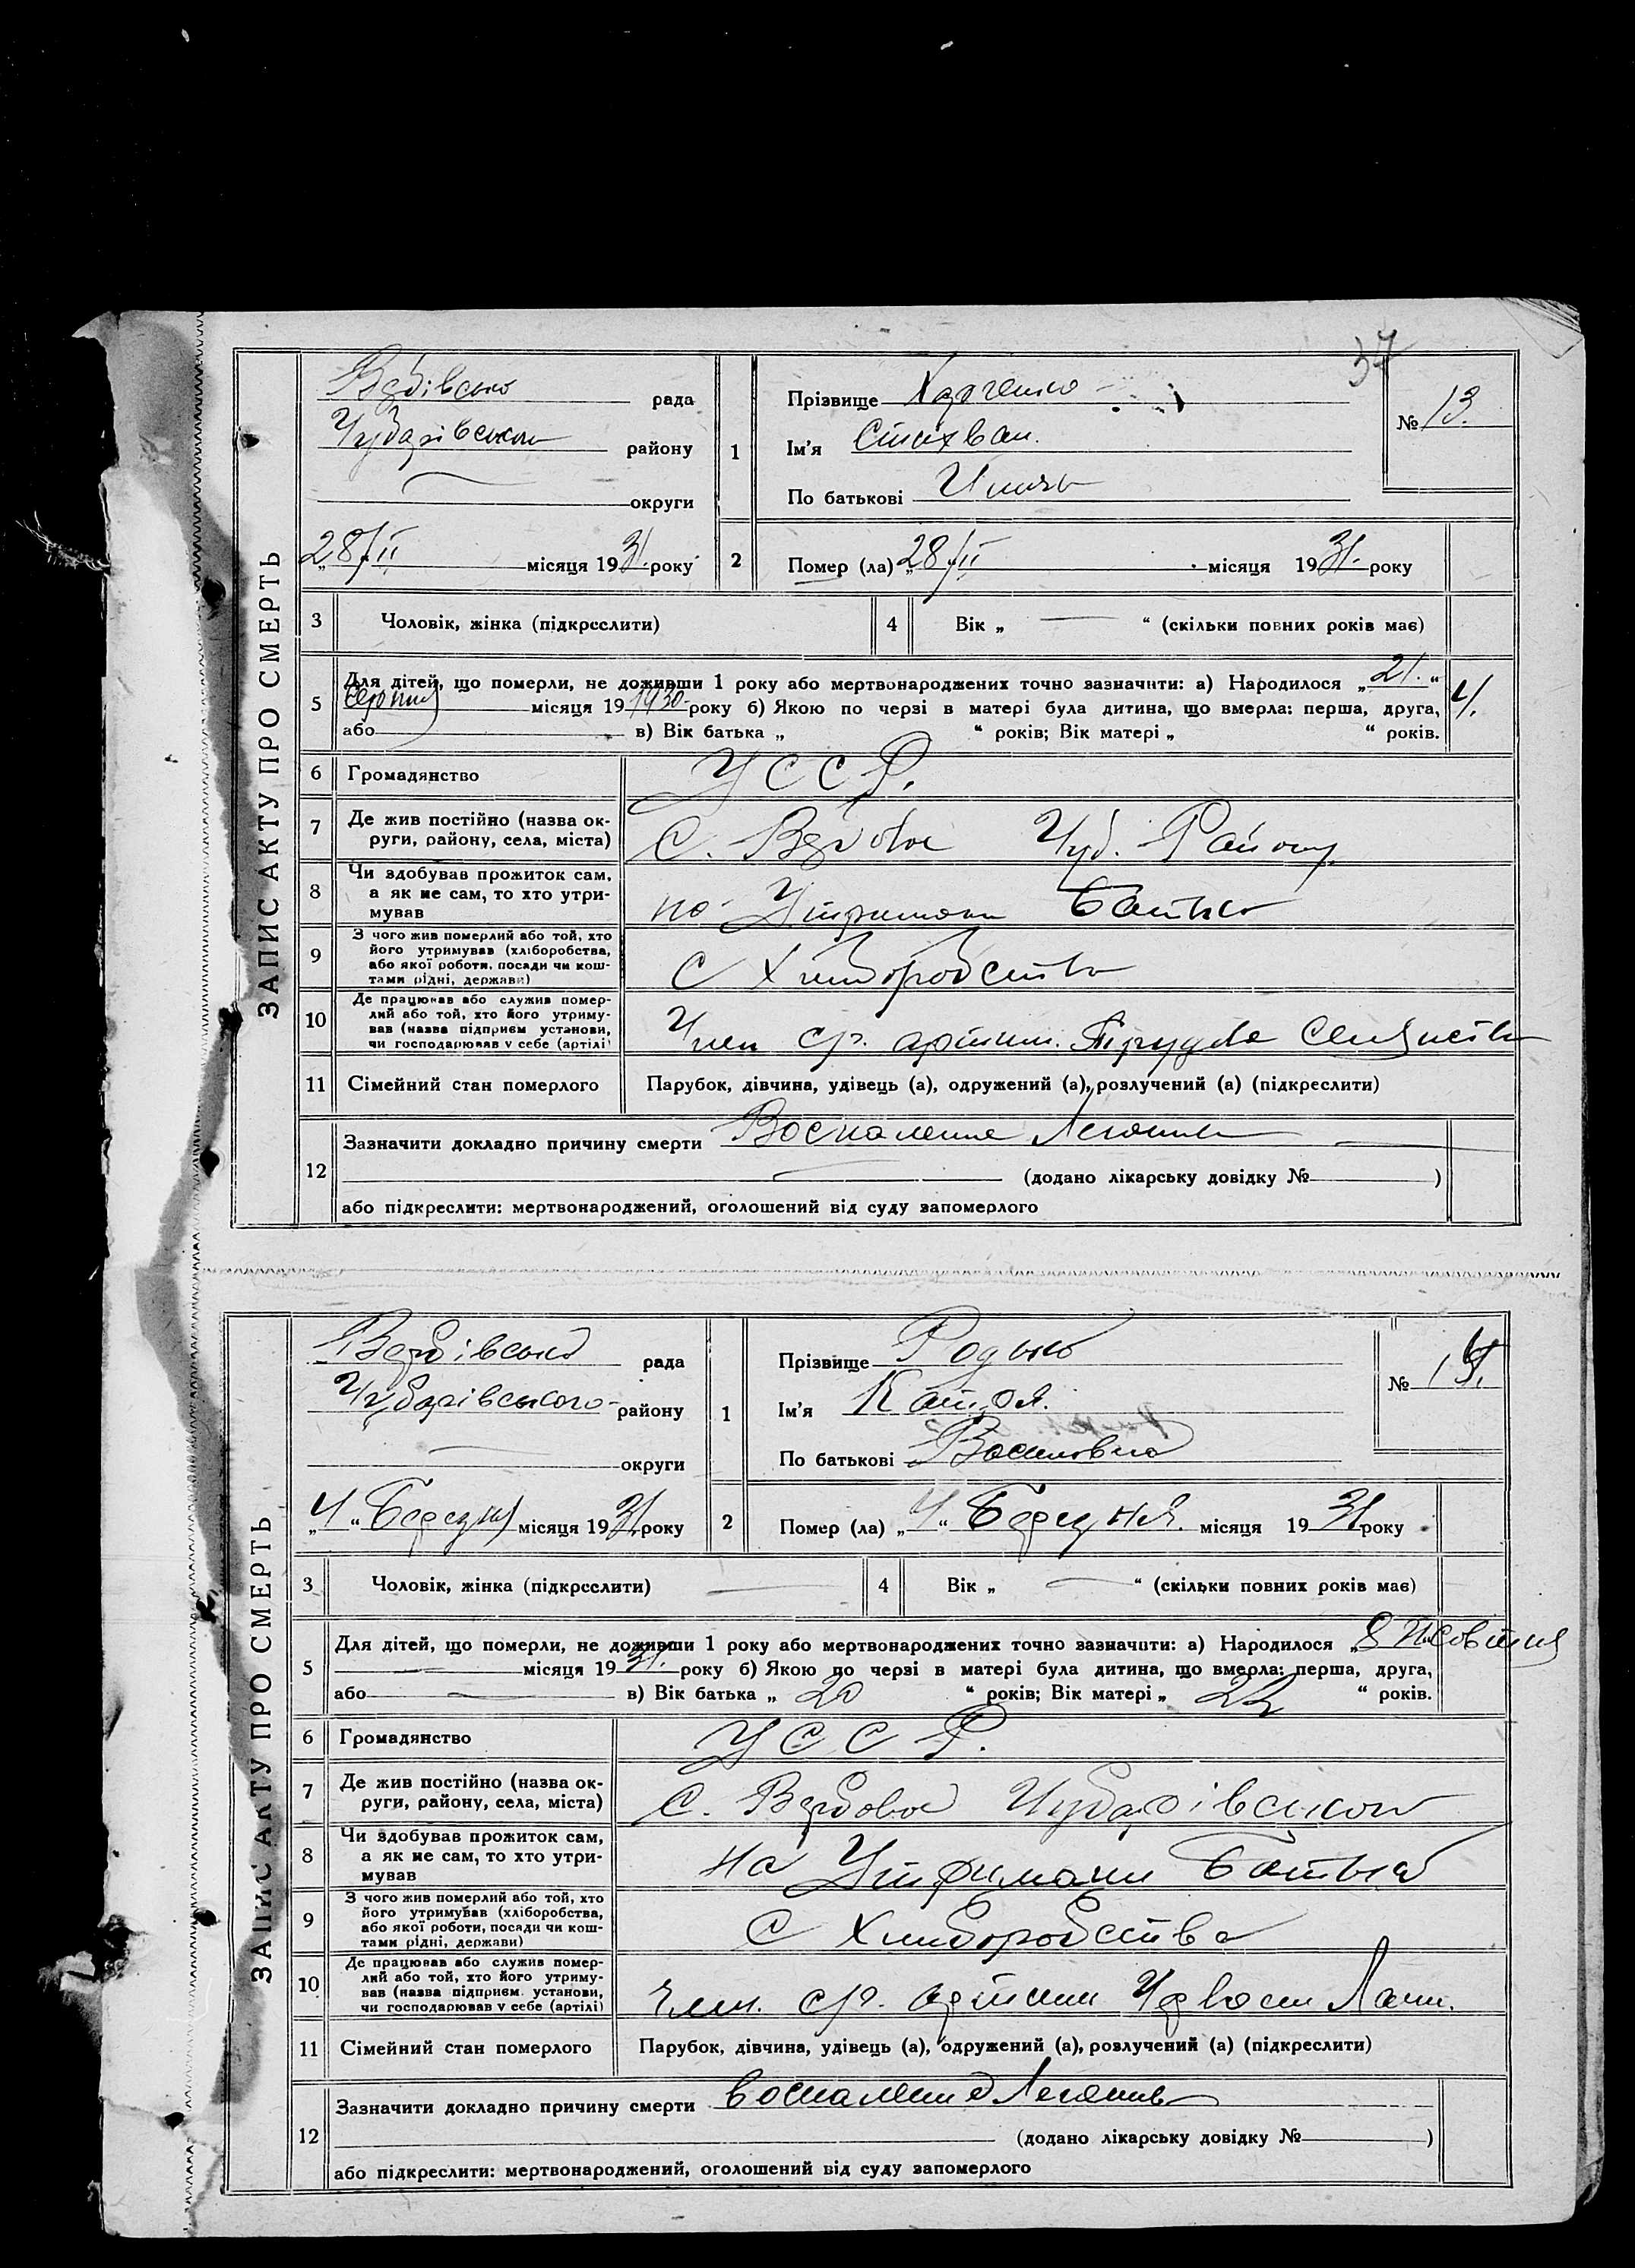 37
ЗАПИС АКТУ ПРО СМЕРТЬ
рада
Чубарівського району
округи
28/II місяця 1931. року
1
Прізвище Харченко
Ім'я
По батькові
№ 13.
2
Помер (ла) „28/II місяця 1931. року
3 Чоловік, жінка (підкреслити)
4 Вік „ — “ (скільки повних років має)
5 Для дітей, що померли, не доживши 1 року або мертвонароджених точно зазначити: а) Народилося „21.“
серпня місяця 191930 року б) Якою по черзі в матері була дитина, що вмерла: перша, друга, 4.
або в) Вік батька „ “ років; Вік матері „ “ років.
6 Громадянство УССР.
7 Де жив постійно (назва ок-
руги, району, села, міста) С. Вербове Чуб. Району
8 Чи здобував прожиток сам,
а як не сам, то хто утри-
мував на Утримани Батька
9 З чого жив померлий або той, хто
його утримував (хліборобства,
або якої роботи, посади чи кош-
тами рідні, держави) С Хлиборобства
10 Де працював або служив помер-
лий або той, хто його утриму-
вав (назва підприєм установи,
чи господарював у себе (артілі) Член ср. артили
11 Сімейний стан померлого Парубок, дівчина, удівець (а), одружений (а), розлучений (а) (підкреслити)
12 Зазначити докладно причину смерти Воспаление Легких
(додано лікарську довідку № )
або підкреслити: мертвонароджений, оголошений від суду запомерлого
ЗАПИС АКТУ ПРО СМЕРТЬ
Вербівська рада
Чубарівського району
округи
„4“ Березня місяця 1931. року
1
Прізвище Родько
Ім'я Катря.
По батькові Василовна
№ 14.
2
Помер (ла) „4“ Березня. місяця 1931 року
3 Чоловік, жінка (підкреслити)
4 Вік „ — “ (скільки повних років має)
5 Для дітей, що померли, не доживши 1 року або мертвонароджених точно зазначити: а) Народилося „8 Жовтня
місяця 1931. року б) Якою по черзі в матері була дитина, що вмерла: перша, друга,
або в) Вік батька „ 20 “ років; Вік матері „ “ років.
6 Громадянство УССР.
7 Де жив постійно (назва ок-
руги, району, села, міста) С. Вербове Чубарівського
8 Чи здобував прожиток сам,
а як не сам, то хто утри-
мував на Утримани Батька
9 З чого жив померлий або той, хто
його утримував (хліборобства,
або якої роботи, посади чи кош-
тами рідні, держави) С Хлиборобства
10 Де працював або служив помер-
лий або той, хто його утриму-
вав (назва підприєм. установи,
чи господарював у себе (артілі) член. ср. артили
11 Сімейний стан померлого Парубок, дівчина, удівець (а), одружений (а), розлучений (а) (підкреслити)
12 Зазначити докладно причину смерти воспаление Легких
(додано лікарську довідку № )
або підкреслити: мертвонароджений, оголошений від суду запомерлого